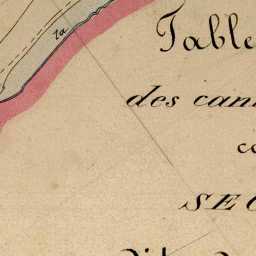 la
Table
des can
co
SEC